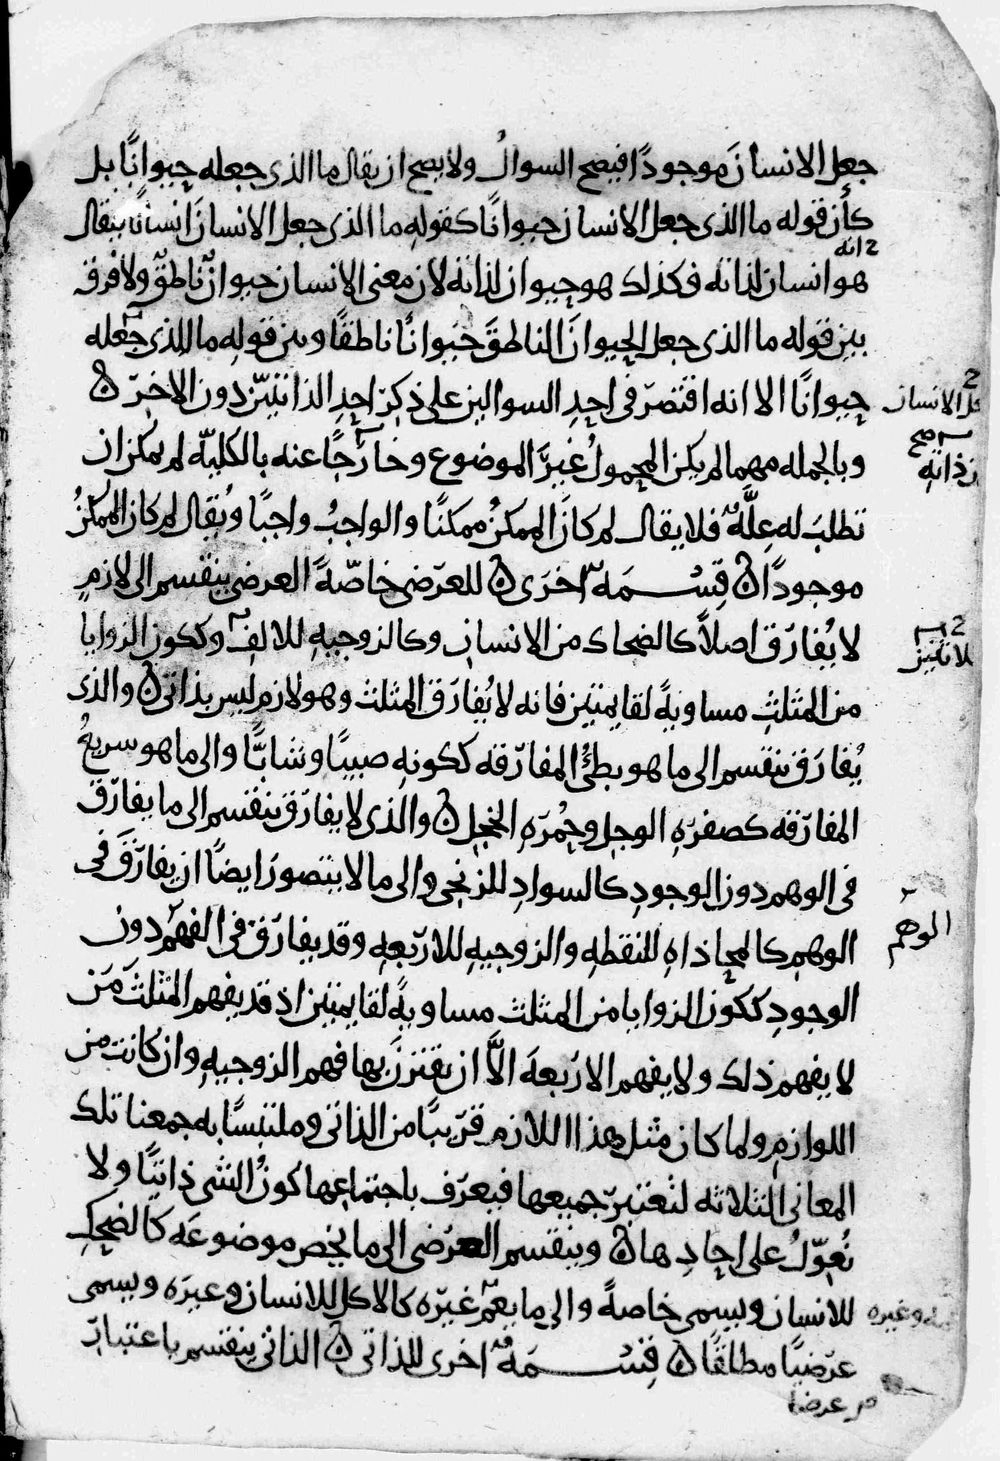 جعل الانسانَ موجودًا فيصح السوالُ ولا يصح ان يقال ما الذى جعله حيوانًا بل
كأن قوله ما الذى جعل الانسان حيوانًا كقوله ما الذى جعل الانسانَ انسانًا فيقال
انه
هو انسان لذاته فكذلك هو حيوان لذاته لان معنى الانسان حيوانٌ ناطقٌ ولا فرق
بين قوله ما الذى جعل الحيوانَ الناطقَ حيوانًا ناطقًا وبين قوله ما الذى جعله
حيوانًا الا انه اقتصر فى احدِ السوالين على ذكر احدِ الذاتيين دون الاخر ن
الانسان
وبالجمله مهما لم يكن المحمولُ غيرَ الموضوع وخارجًا عنه بالكليه لم يمكن ان
صح
ذاتيه
تطلبَ له عِلَّهٌ فلا يقال لم كانَ الممكنُ ممكنًا والواجبُ واجبًا ويُقال لم كان الممكنُ
موجودًا ن قِسْمَهٌ اخرَى ن للعرَضى خاصّهً العرضى ينقسم الى لازمٍ
لا يُفارَق اصلاً كالضحاك من الانسانِ وكالزوجيهِ للالفِ وككون الزوايا
من المثلثِ مساويهً لقايمتين فانه لا يُفارَق المثلث وهو لازم ليس بذاتى ن والذى
يُفارَق ينقسم الى ما هو بطئُ المفارقه ككونهِ صبيًا وشابًّا والى ما هو سريعُ
المفارقه كصفرَهِ الوجل وحُمرَهِ الخجل ن والذى لا يفارَق ينقسم الى ما يفارَق
فى الوهم دون الوجودِ كالسوادِ للزنجى والى ما لا يتصور ايضًا ان يفارَقَ فى
الوهم كالمحاذاهِ للنقطهِ والزوجيهِ للاربعهِ وقد يفارَق فى الفهم دون
الوهم
الوجودِ ككون الزوايا من المثلث مساويهً لقايمتين اذ قد يفهم المثلثَ مَن
لا يفهم ذلك ولا يفهم الاربعهَ الاَّ ان يقترنَ بها فهم الزوجيهِ وان كانت من
اللوازم ولما كان مثل هذا اللازم قريبًا من الذاتى وملتبسًا به جمعنا تلك
المعانى الثلاثه لتعتبر جميعها فيعرَف باجتماعها كونُ الشى ذاتيًا ولا
نُعوّلُ على احادِها ن وينقسم العرضى الى ما يخص موضوعَه كالضحكِ
للانسان ويسمى خاصهً والى ما يعم غيرَه كالاكل للانسان وغيره ويسمى
وغيره
عرَضيًا مطلقًا ن قِسْمَهٌ اخرى للذاتى ن الذاتى ينقسم باعتبارٍ
عرضا